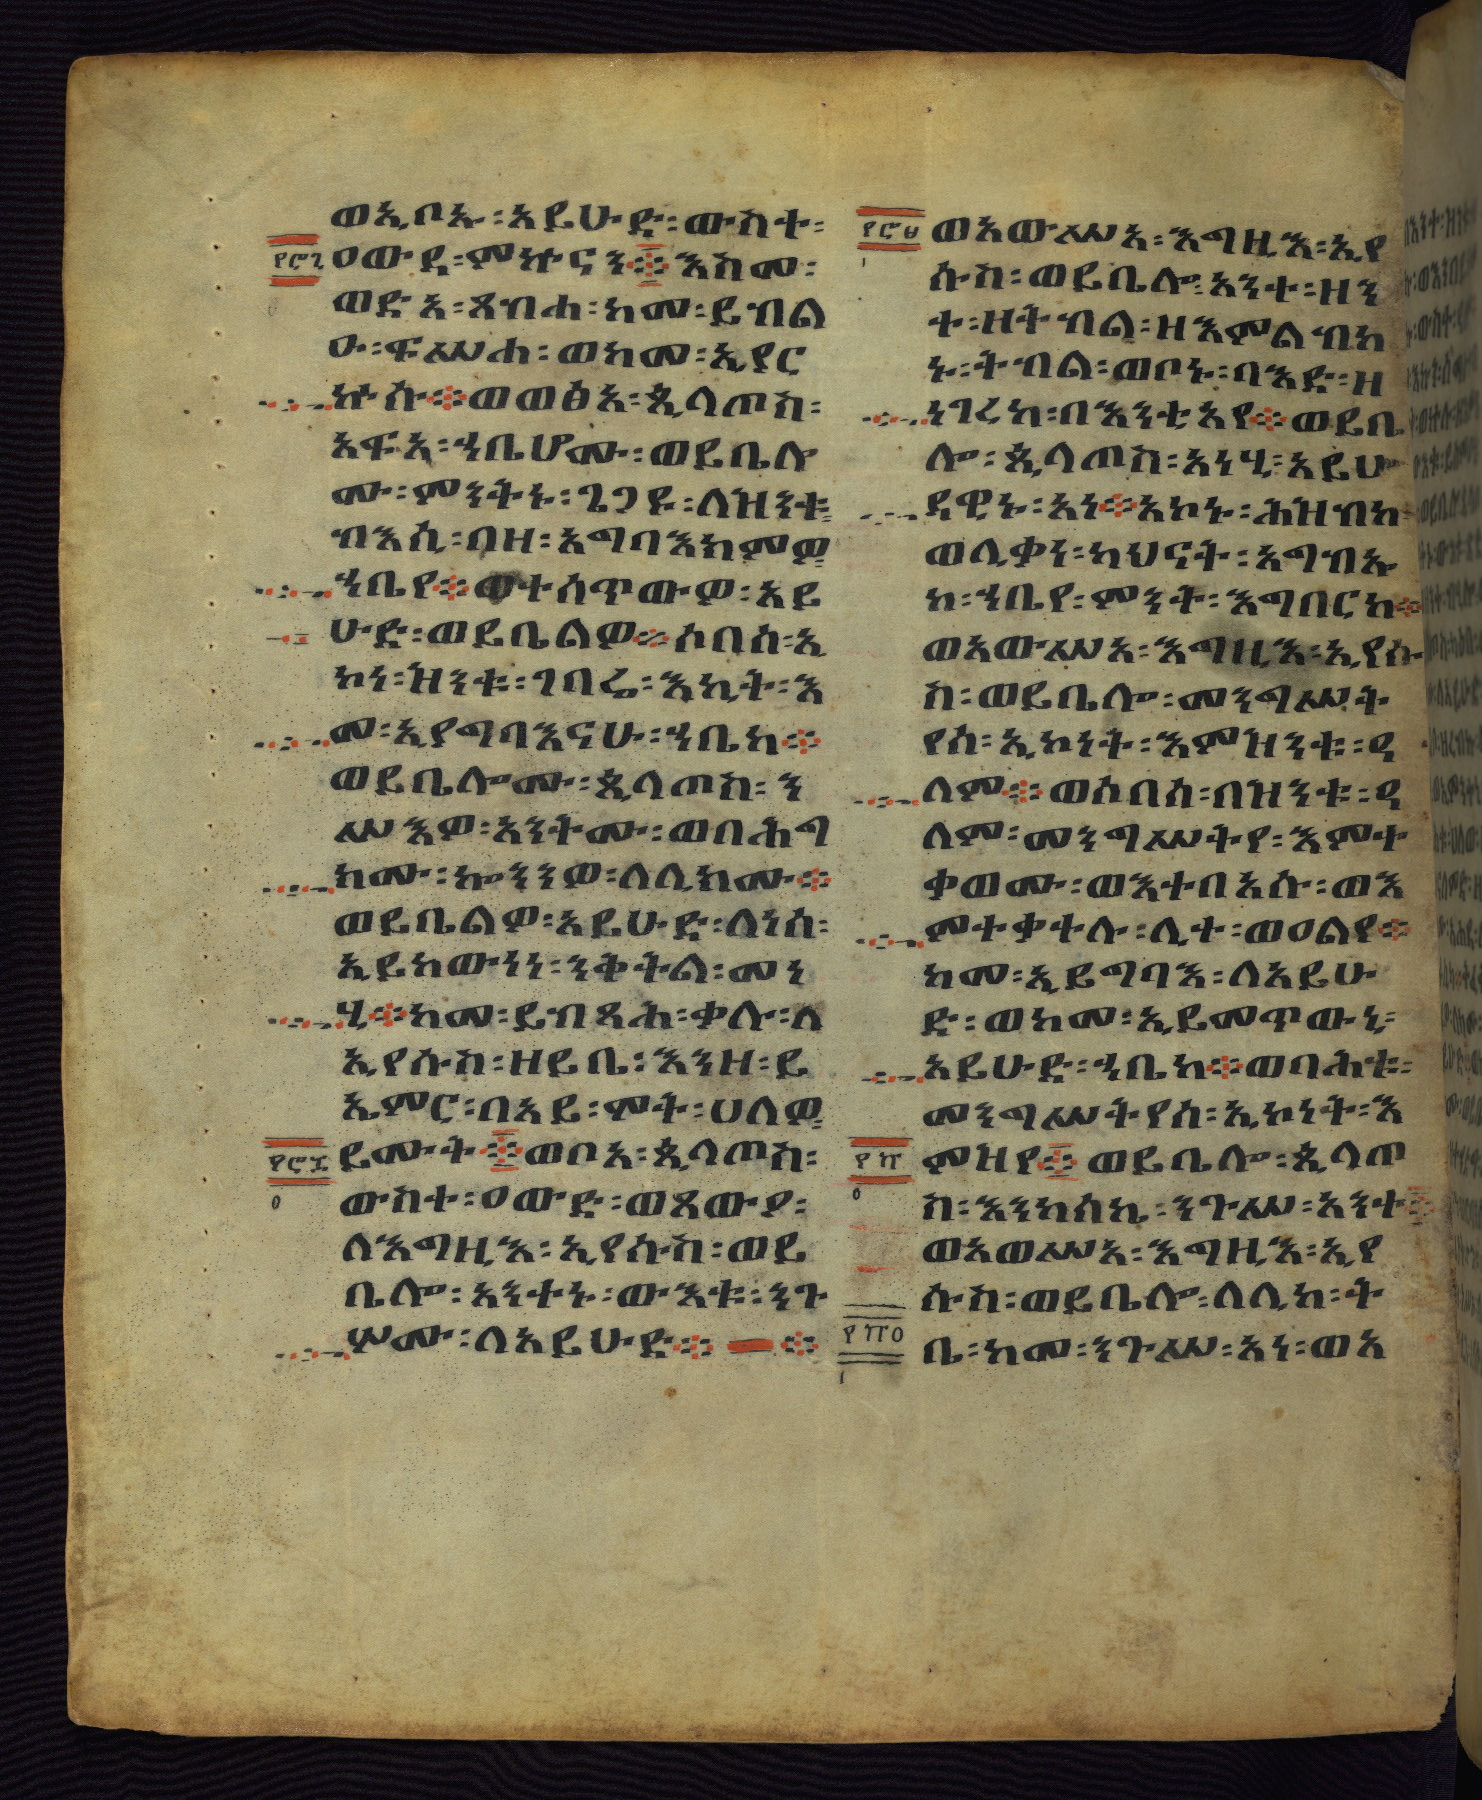 ወኢቦኡ፡አይሁድ፡ውስተ፡
፻፸፯ ዐውደ፡ምኵናን፨እስመ፡
ወድአ፡ጸብሐ፡ከመ፡ይብል
ዑ፡ፍሥሐ፡ወከመ፡ኢያር
ኵሱ፨ወወፅአ፡ጲላጦስ፡
አፍአ፡ኀቤሆሙ፡ወይቤሎ
ሙ፡ምንትኑ፡ጌጋዩ፡ለዝንቱ፡
ብእሲ፡በዘ፡አግባእክምዎ፡
ኀቤየ፨ወተሰጥውዎ፡አይ
ሁድ፡ወይቤልዎ፨ሶበሰ፡ኢ
ኮነ፡ዝንቱ፡ገባሬ፡እኪት፡እ
መ፡ኢያግባእናሁ፡ኀቤከ፨
ወይቤሎሙ፡ጲላጦስ፡ን
ሥእዎ፡አንትሙ፡ወበሕግ
ክሙ፡ኰንንዎ፡ለሊክሙ፨
ወይቤልዎ፡አይሁድ፡ለነሰ፡
ኢይከውነነ፡ንቅትል፡መነ
ሂ፨ከመ፡ይብጻሕ፡ቃሉ፡ለ
ኢየሱስ፡ዘይቤ፡እንዘ፡ይ
ኤምር፡በአይ፡ምት፡ሀለዎ፡
፻፸፰ ይሙት፨ወቦአ፡ጲላጦስ፡
ዐ ውስተ፡ዐውድ፡ወጸውዖ፡
ለእግዚእ፡ኢየሱስ፡ወይ
ቤሎ፡አንተኑ፡ውእቱ፡ንጉ
ሦሙ፡ለአይሁድ፨ ፨
፻፸፱ ወአውሥአ፡እግዚእ፡ኢየ
ሱስ፡ወይቤሎ፡አንተ፡ዘን
ተ፡ዘትብል፡ዘእምልብከ
ኑ፡ትብል፡ወቦኑ፡ባእድ፡ዘ
ነገረከ፡በእንቲአየ፨ወይቤ
ሎ፡ጲላጦስ፡አነሂ፡አይሁ
ዳዊኑ፡አነ፨አኮኑ፡ሕዝብከ
ወሊቃነ፡ካህናት፡አግብኡ
ከ፡ኀቤየ፡ምንት፡እግበርከ፨
ወአውሥአ፡እግዚእ፡ኢየሱ
ስ፡ወይቤሎ፡መንግሥት
የሰ፡ኢኮነት፡እምዝንቱ፡ዓ
ለም፨ወሶበሰ፡በዝንቱ፡ዓ
ለም፡መንግሥትየ፡እምተ
ቃወሙ፡ወእተበአሱ፡ወእ
ምተቃተሉ፡ሊተ፡ወዐልየ፨
ከመ፡ኢይግባእ፡ለአይሁ
ድ፡ወከመ፡ኢይመጥውኒ፡
አይሁድ፡ኀቤከ፨ወባሕቱ፡
መንግሥትየሰ፡ኢኮነት፡እ
፻፹ ምዝየ፨ወይቤሎ፡ጲላጦ
ዐ ስ፡እንከሰኬ፡ንጉሥ፡አንተ፨
ወአወሥአ፡እግዚእ፡ኢየ
ሱስ፡ወይቤሎ፡ለሊከ፡ት
፻፹ዐ ቤ፡ከመ፡ንጉሥ፡አነ፡ወአ